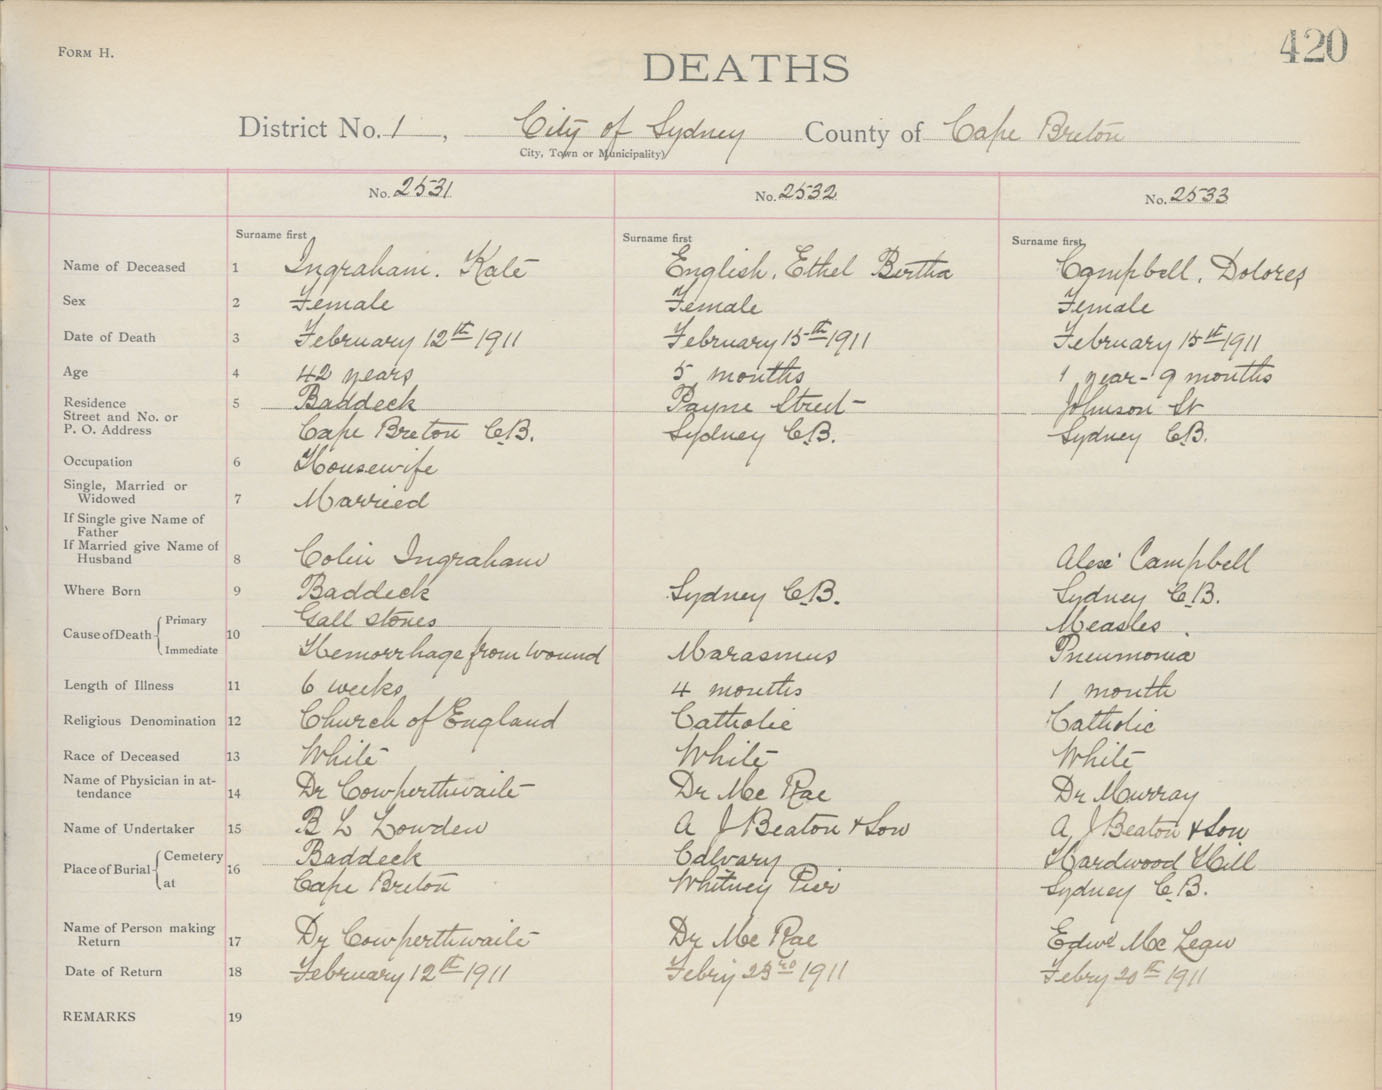 FORM H.
420
DEATHS
District No. 1, City of Sydney County of Cape Breton
City, Town or Municipality)
No. 2531 No. 2532 No. 2533
Surname first Surname first Surname first
Name of Deceased 1 Ingraham. Kate English, Ethel Bertha Campbell, Dolores
Sex 2 Female Female Female
Date of Death 3 February 12th 1911 February 15th 1911 February 15th 1911
Age 4 42 years 5 months 1 year - 9 months
Residence
Street and No. or
P. O. Address
5 Baddeck Payne Street Johnson St
Cape Breton C.B. Sydney C.B. Sydney C.B.
Occupation 6 Housewife
Single, Married or
Widowed 7 Married
If Single give Name of
Father
If Married give Name of
Husband 8 Colin Ingraham Alex Campbell
Where Born 9 Baddeck Sydney C.B. Sydney C.B.
Cause of Death 10
Primary Gall stones Measles
Immediate Hemorrhage from wound Marasmus Pneumonia
Length of Illness 11 6 weeks 4 months 1 month
Religious Denomination 12 Church of England Catholic Catholic
Race of Deceased 13 White White White
Name of Physician in at-
tendance 14 Dr Cowperthwaite Dr Mc Rae Dr Murray
Name of Undertaker 15 B L Lowden A J Beaton & Son A J Beaton & Son
Place of Burial 16
Cemetery Baddeck Calvary Hardwood Hill
at Cape Breton Whitney Pier Sydney C.B.
Name of Person making
Return 17 Dr Cowperthwaite Dr Mc Rae Edwd Mc
Date of Return 18 February 12th 1911 Febry 23rd 1911 Febry 20th 1911
REMARKS 19